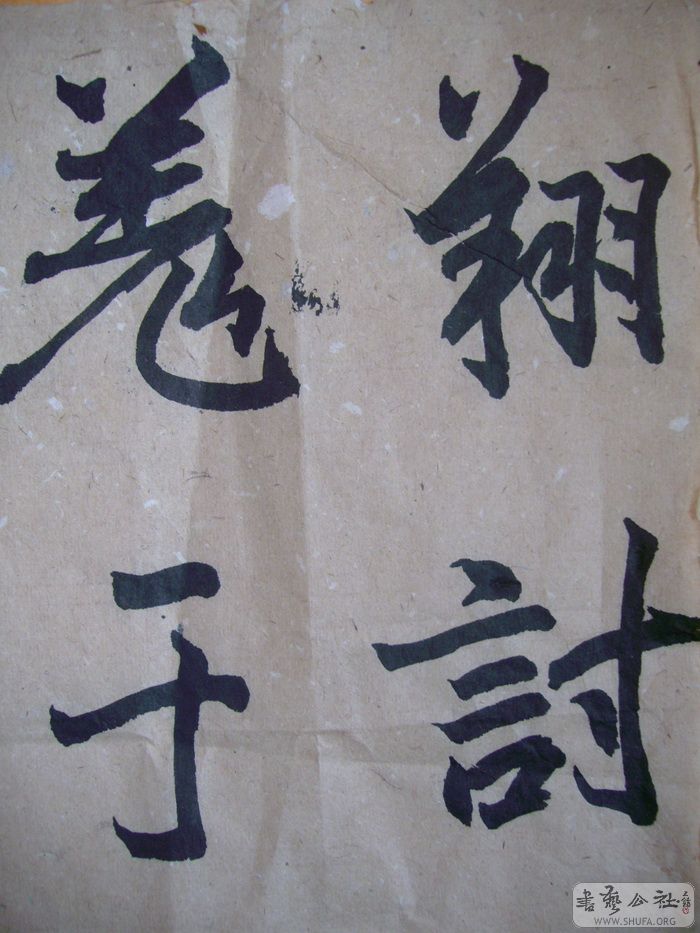 翔討
羗于
書藝公社
WWW.SHUFA.ORG